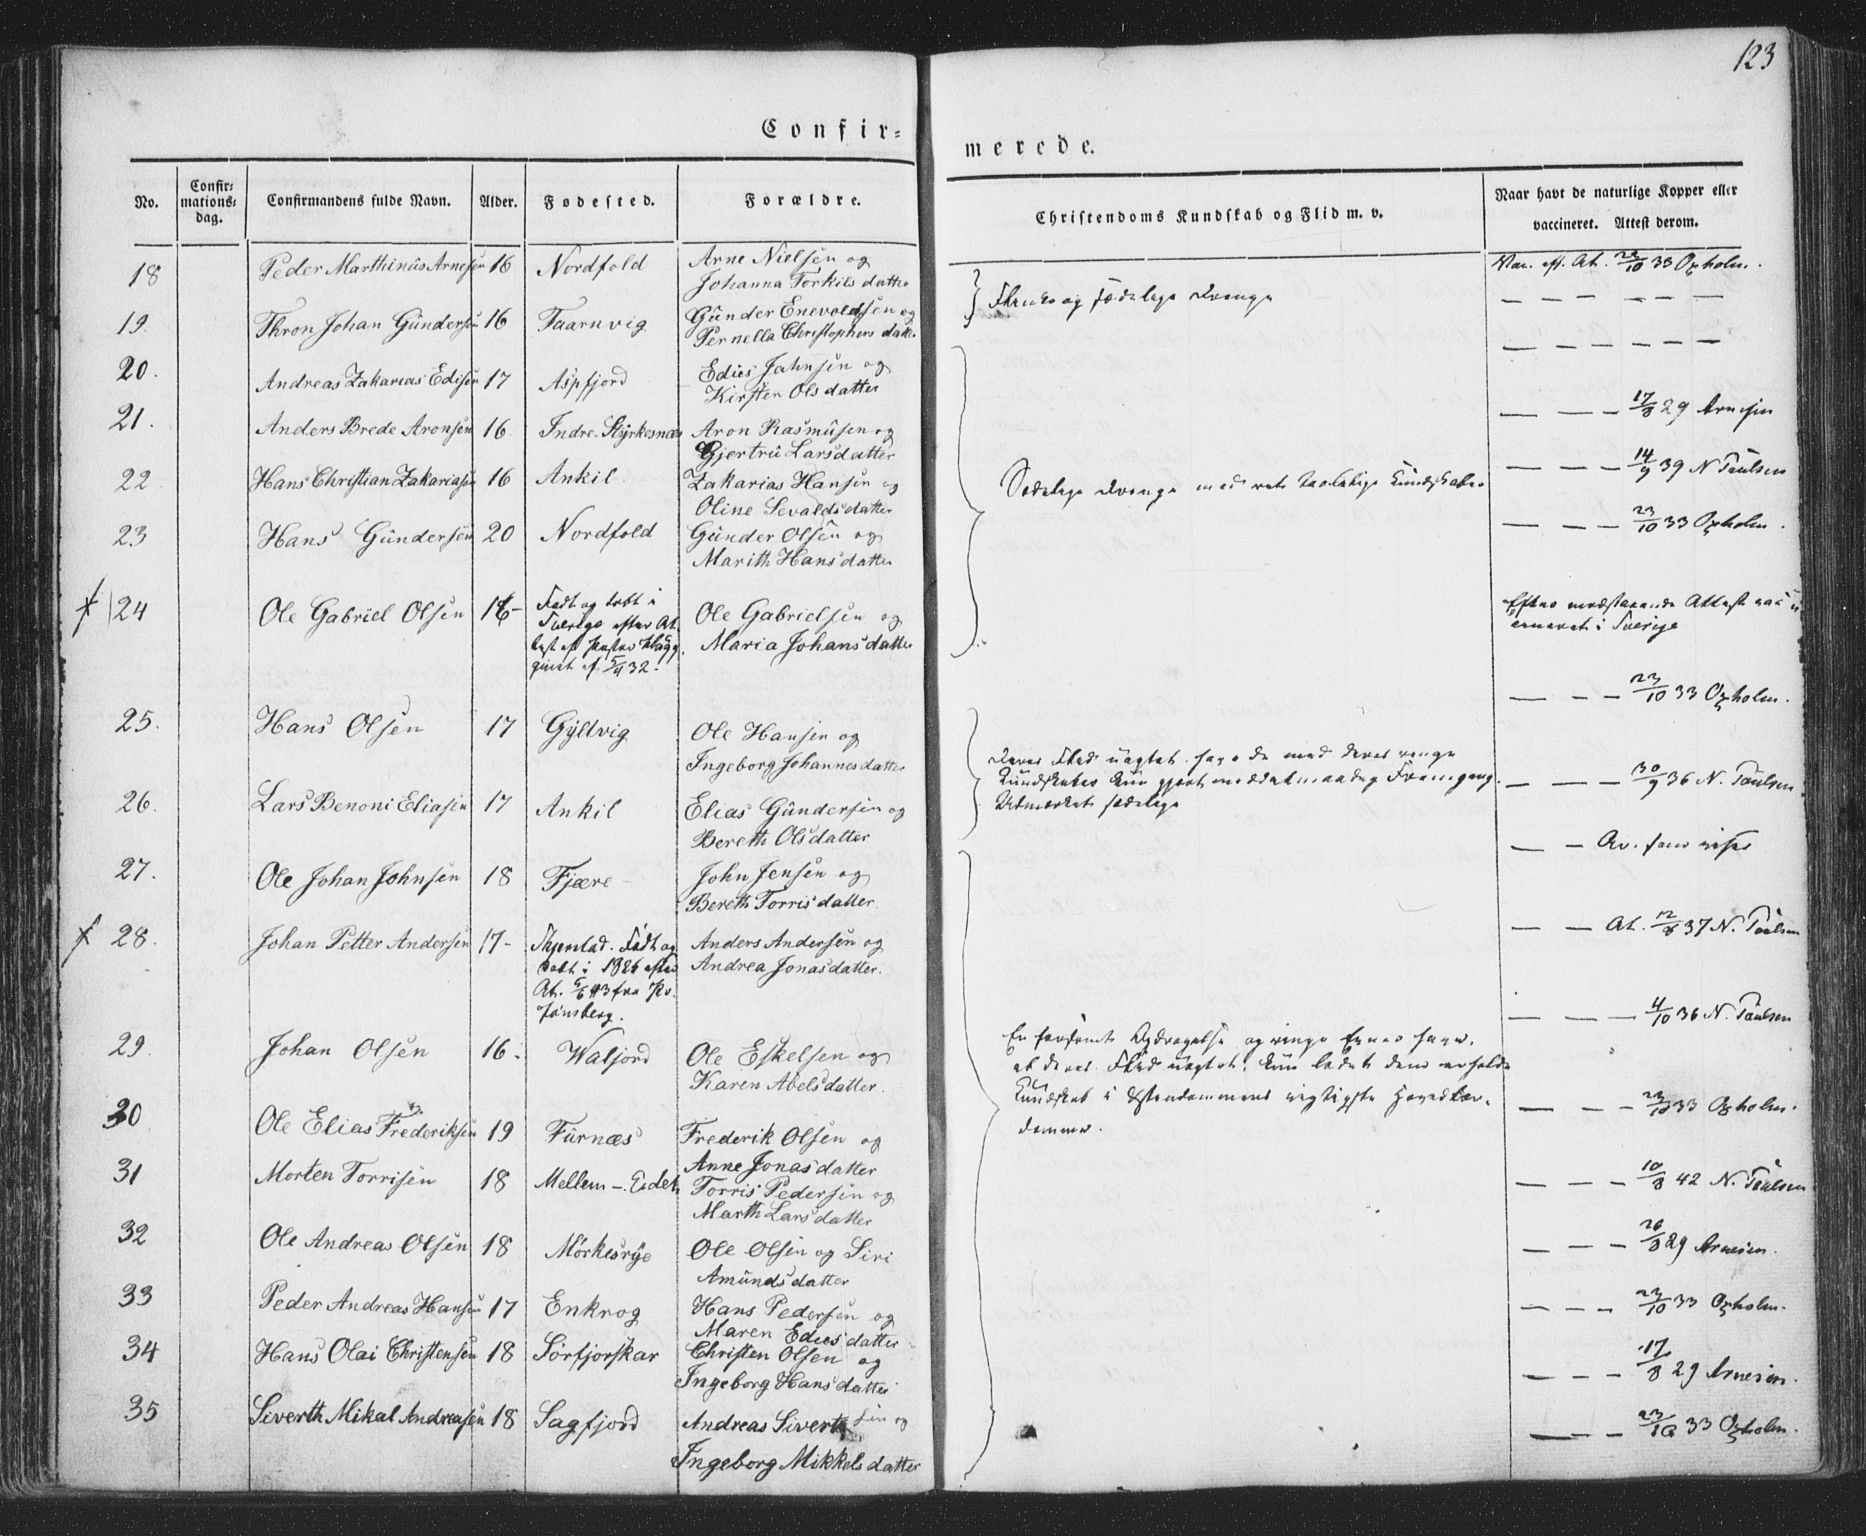 123
Confir=
merede.
No.
Confir=
mations=
dag.
Confirmandens fulde Navn.
Alder.
Fødested.
Forældre.
Christendoms Kundskab og Flid m. v.
Naar havt de naturlige Kopper eller
vaccineret. Attest derom.
18 Peder Marthinus Arnesen 16 Nordfold Arne Nielsen og
Johanna Torkils datter
Vac. eft. At. 23/10 33 Oxholm.
Flinke og sædelige Drenge
19. Thron Johan Gündersen 16 Taarnvig Günder Enevoldsen og
Pernella Christophers datter
— — — — — —
20. Andreas Zakarias Edisen 17 Aspfjord Edies Jahnsen og
Kirsten Olsdatter
— — — — — —
21. Anders Brede Aronsen 16 Indre-Styrkesnæs Aron Rasmüsen og
Gjertrü Larsdatter
— — — 17/8 29 Arnesen
22 Hans Christian Zakariasen 16 Ankil Zakarias Hansen og
Oline Sevaldsdatter
— — — 14/9 39 N Paulsen
Sædelige Drenge med ret Kündskaber
23 Hans Gündersen 20 Nordfold Günder Olsen og
Marith Hans datter
— — — 23/10 33 Oxholm.
24 Ole Gabriel Olsen 16 - Født og døbt i
Sverige efter At.
test af Pastor
af 5/9 32.
Ole Gabrielsen og
Maria Johans datter
Efter modstaaende Attest vac
cineret i Sverige
25. Hans Olsen 17 Gyltvig Ole Hansen og
Ingeborg Johannes datter
— — — 23/10 33 Oxholm.
Deres Flid uagtet have de med deres ringe
Kundskaber kun gjort maadelig Fremgang.
Udmærket sædelige
26. Lars Benoni Eliasen 17 Ankil Elias Gündersen og
Bereth Olsdatter
— — — 30/9 36 N. Paulsen
27. Ole Johan Johnsen 18 Fjære - John Jensen og
Bereth Torris datter.
— — Ar. som viser
28. Johan Petter Andersen 17- Skjerstad. Født og
døbt i 1826 efter
At. 5/6 43 fra
Anders Andersen og
Andrea Jonasdatter.
— — At. 12/8 37 N. Paulsen
29. Johan Olsen 16. Valjord Ole Eskelsen og
Karen Abelsdatter.
— — — 4/10 36 N. Paulsen
En forsømt Opdragelse og ringe Evner have,
at deres Flid uagtet, kun ladet dem erholde
Kundskab i Xstendommens vigtigste Hovedlær-
domme.
30 Ole Elias Frederiksen 19 Fürnæs Frederik Olsen og
Anne Jonas datter
— — — 23/10 33 Oxholm.
31 Morten Torrisen 18 Mellem-Eidet Torris Pedersen og
Marth Lars datter
— — — 10/8 42 N. Paulsen
32 Ole Andreas Olsen 18 Mörkesvig Ole Olsen og Siri
Amünds datter
— — — 26/8 29 Arnesen.
33 Peder Andreas Hansen 17 Enkrog Hans Pedersen og
Maren Edies datter
— — — 23/10 33 Oxholm.
34 Hans Olai Christensen 18 Sörfjorskar Christen Olsen og
Ingeborg Hans datter
— — — 17/8 29 Arnesen.
35 Siverth Mikal Andreasen 18 Sagfjord Andreas Sivertsen og
Ingeborg Mikkels datter
— — — 23/10 33 Oxholm.